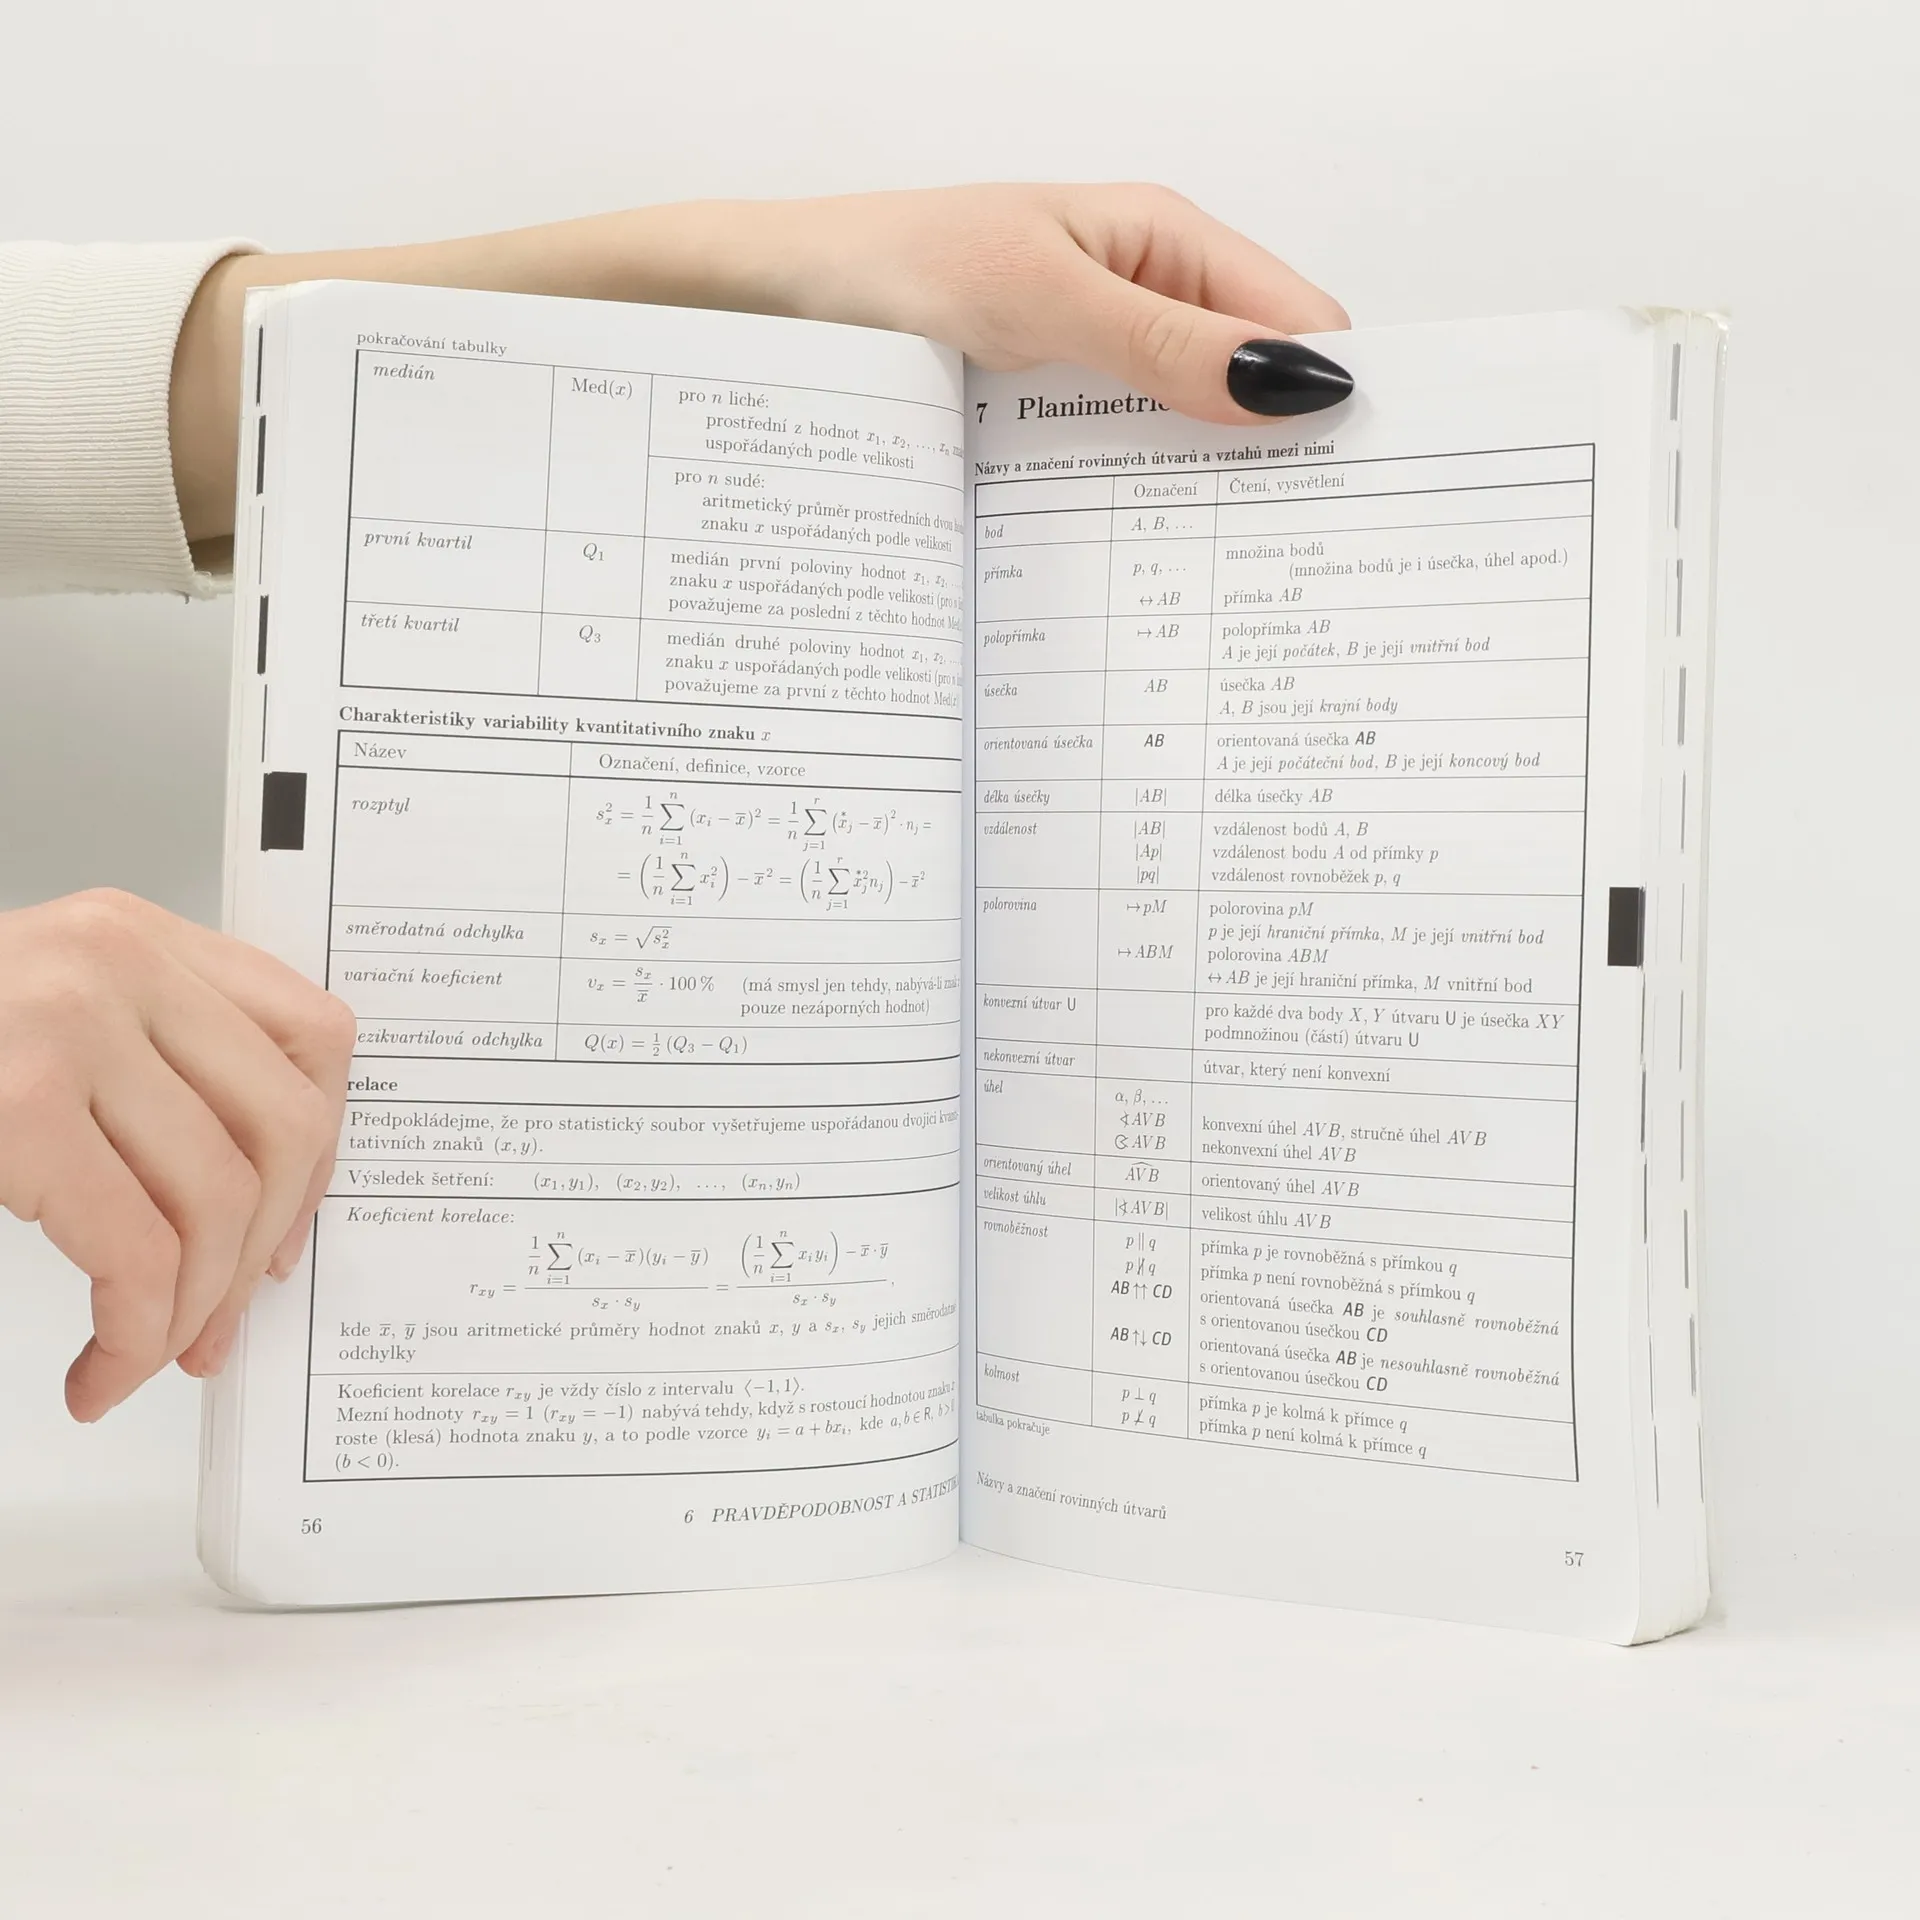 pokračování tabulky
medián Med(x) pro n liché:
prostřední z hodnot x₁, x₂, …, xₙ
uspořádaných podle velikosti
pro n sudé:
aritmetický průměr prostředních dvou
znaku x uspořádaných podle velikosti
první kvartil Q₁ medián první poloviny hodnot x₁, x₂, …
znaku x uspořádaných podle velikosti (pro n
považujeme za poslední z těchto hodnot
třetí kvartil Q₃ medián druhé poloviny hodnot x₁, x₂, …
znaku x uspořádaných podle velikosti (pro n
považujeme za první z těchto hodnot Med(x)
Charakteristiky variability kvantitativního znaku x
Název Označení, definice, vzorce
rozptyl s²ₓ = 1/n ∑ⁿᵢ₌₁ (xᵢ − x̅)² = 1/n ∑ʳⱼ₌₁ (x*ⱼ − x̅)² · nⱼ =
= (1/n ∑ⁿᵢ₌₁ x²ᵢ) − x̅² = (1/n ∑ʳⱼ₌₁ x*²ⱼ nⱼ) − x̅²
směrodatná odchylka sₓ = √s²ₓ
variační koeficient vₓ = sₓ/x̅ · 100 % (má smysl jen tehdy, nabývá-li
pouze nezáporných hodnot)
ezikvartilová odchylka Q(x) = ½ (Q₃ − Q₁)
relace
Předpokládejme, že pro statistický soubor vyšetřujeme uspořádanou dvojici
tativních znaků (x, y).
Výsledek šetření: (x₁, y₁), (x₂, y₂), …, (xₙ, yₙ)
Koeficient korelace:
r_xy = (1/n ∑ⁿᵢ₌₁ (xᵢ − x̅)(yᵢ − y̅)) / (sₓ · s_y) = ((1/n ∑ⁿᵢ₌₁ xᵢyᵢ) − x̅ · y̅) / (sₓ · s_y),
kde x̅, y̅ jsou aritmetické průměry hodnot znaků x, y a sₓ, s_y jejich směrodatné
odchylky
Koeficient korelace r_xy je vždy číslo z intervalu ⟨−1, 1⟩.
Mezní hodnoty r_xy = 1 (r_xy = −1) nabývá tehdy, když s rostoucí hodnotou znaku x
roste (klesá) hodnota znaku y, a to podle vzorce yᵢ = a + bxᵢ, kde a, b ∈ R, b >
(b < 0).
56
6 PRAVDĚPODOBNOST A STATISTIK
7 Planimetri
Názvy a značení rovinných útvarů a vztahů mezi nimi
Označení Čtení, vysvětlení
bod A, B, …
přímka p, q, … množina bodů
(množina bodů je i úsečka, úhel apod.)
↔ AB přímka AB
polopřímka ↦ AB polopřímka AB
A je její počátek, B je její vnitřní bod
úsečka AB úsečka AB
A, B jsou její krajní body
orientovaná úsečka AB orientovaná úsečka AB
A je její počáteční bod, B je její koncový bod
délka úsečky |AB| délka úsečky AB
vzdálenost |AB| vzdálenost bodů A, B
|Ap| vzdálenost bodu A od přímky p
|pq| vzdálenost rovnoběžek p, q
polorovina ↦ pM polorovina pM
p je její hraniční přímka, M je její vnitřní bod
↦ ABM polorovina ABM
↔ AB je její hraniční přímka, M vnitřní bod
konvexní útvar U pro každé dva body X, Y útvaru U je úsečka XY
podmnožinou (částí) útvaru U
nekonvexní útvar útvar, který není konvexní
úhel α, β, …
∢AVB konvexní úhel AVB, stručně úhel AVB
AVB nekonvexní úhel AVB
orientovaný úhel AVB orientovaný úhel AVB
velikost úhlu |∢AVB| velikost úhlu AVB
rovnoběžnost p ∥ q přímka p je rovnoběžná s přímkou q
p ∦ q přímka p není rovnoběžná s přímkou q
AB ↑↑ CD orientovaná úsečka AB je souhlasně rovnoběžná
s orientovanou úsečkou CD
AB ↑↓ CD orientovaná úsečka AB je nesouhlasně rovnoběžná
s orientovanou úsečkou CD
kolmost p ⊥ q přímka p je kolmá k přímce q
p ⊥̸ q přímka p není kolmá k přímce q
tabulka pokračuje
Názvy a značení rovinných útvarů
57